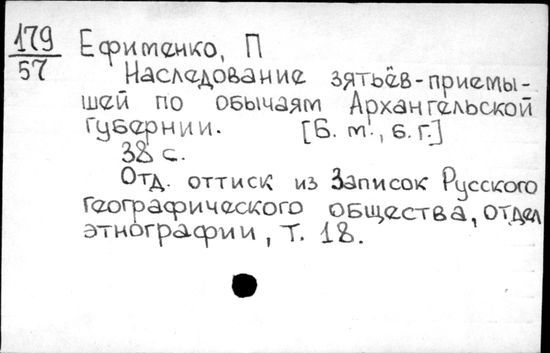 179
57
Ефименко, П
Наследование зятьёв-приемы-
шей по обычаям Архангельской
губернии. [Б. м., б. г.]
38 с.
Отд. оттиск из Записок Русского
географического общества, отдел
этнографии, т. 18.